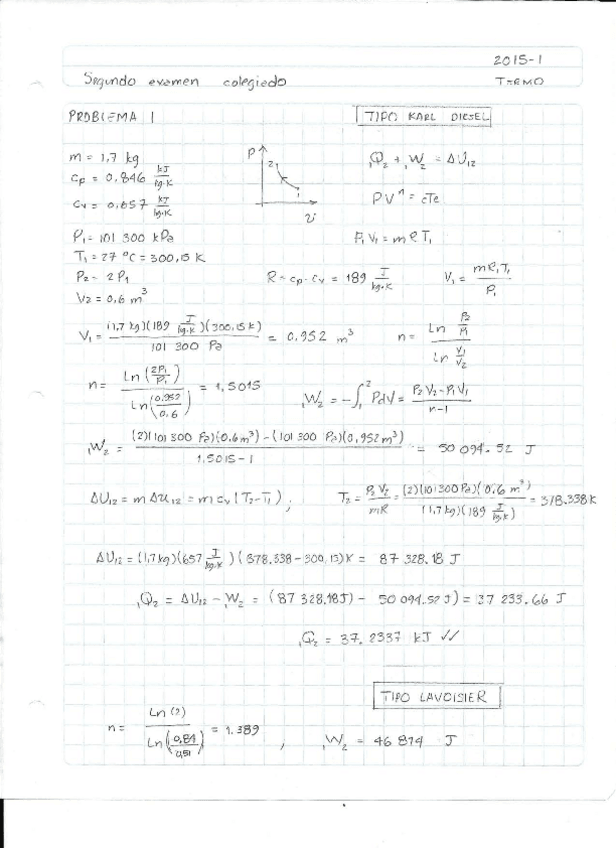 2015-1
Segundo examen colegiado TERMO
PROBLEMA 1 TIPO KARL DIESEL
m = 1,7 kg P 2 1 v ₁Q₂ + ₁W₂ = ΔU₁₂
cp = 0,846 kJ/kg·K PVⁿ = cTe
cv = 0,657 kJ/kg·K
P₁ = 101 300 kPa P₁V₁ = mRT₁
T₁ = 27 °C = 300,15 K
P₂ = 2P₁ R = cp - cv = 189 J/kg·K V₁ = mR₁T₁/P₁
V₂ = 0,6 m³
V₁ = (1,7 kg)(189 J/kg·K)(300,15 K)/101 300 Pa = 0,952 m³ n = Ln P₂/P₁ / Ln V₁/V₂
n = Ln(2P₁/P₁) / Ln(0,952/0.6) = 1,5015 ₁W₂ = -∫₁² PdV = P₂V₂-P₁V₁/n-1
₁W₂ = (2)(101 300 Pa)(0.6 m³)-(101 300 Pa)(0,952 m³)/1.5015-1 = 50 094.52 J
ΔU₁₂ = m Δu₁₂ = m cv (T₂-T₁) ; T₂ = P₂V₂/mR = (2)(101300 Pa)(0.6 m³)/(1,7 kg)(189 J/kg·K) = 378.338 K
ΔU₁₂ = (1,7 kg)(657 J/kg·K)(378.338 - 300,15)K = 87 328.18 J
₁Q₂ = ΔU₁₂ - ₁W₂ = (87 328,18 J) - 50 094.52 J) = 37 233.66 J
₁Q₂ = 37.2337 kJ ✓✓
TIPO LAVOISIER
n = Ln (2) / Ln(0,84/0,51) = 1.389 , ₁W₂ = 46 874 J